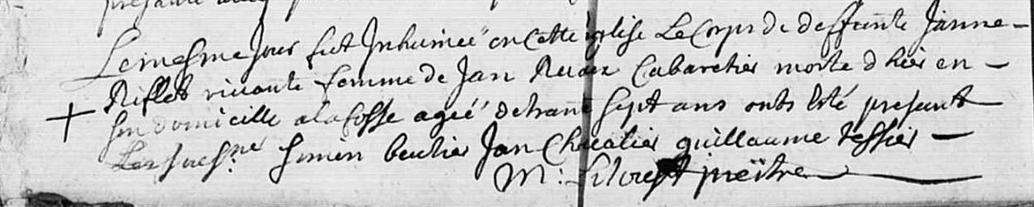 Le mesme Jour fut Inhumeé en Cette eglise Le Corps de deffunte Janne
Riflet vivante femme de Jan Cabaretier morte d hier en
son domicille a la fosse ageé de trant sept ans onts esté presant
simon Jan Chevalier guillaume tessier
M: prestre